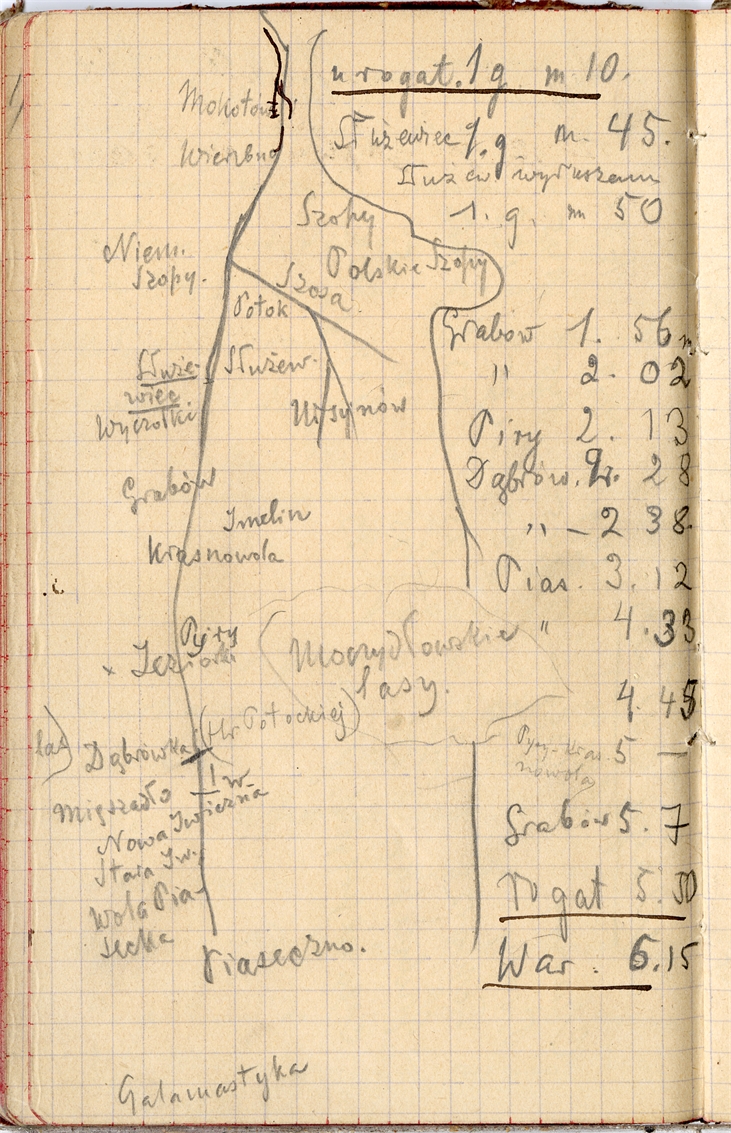 u rogat. 1 g m 10.
Mokotów
Służewiec 1. g m. 45.
Wierzbno
Służew wyruszam
Szopy 1. g. m 50
Niem.
Szopy.
Polskie Szopy
Szosa
Potok
Grabów 1. 56 m
Służe-
wiec
Służew.
" 2. 02
Wyczółki
Ursynów
Piry 2. 13
Dąbrów. 2. 28
Grabów
Imelin
" – 2 38
Krasnowola
Pias. 3. 12
Pyry
" 4. 33
× Jeziorki
Moczydłowskie
lasy.
4. 45
(Hr Potockiej)
las) Dąbrówka
Pyry - Kras
nowola
5 –
1 w
Migszadło
Nowa Iwiczna
Grabów 5. 7
Stara Iw.
Wola Pia-
secka
Rogat 5. 50
Piaseczno.
War. 6. 15
Galamastyka